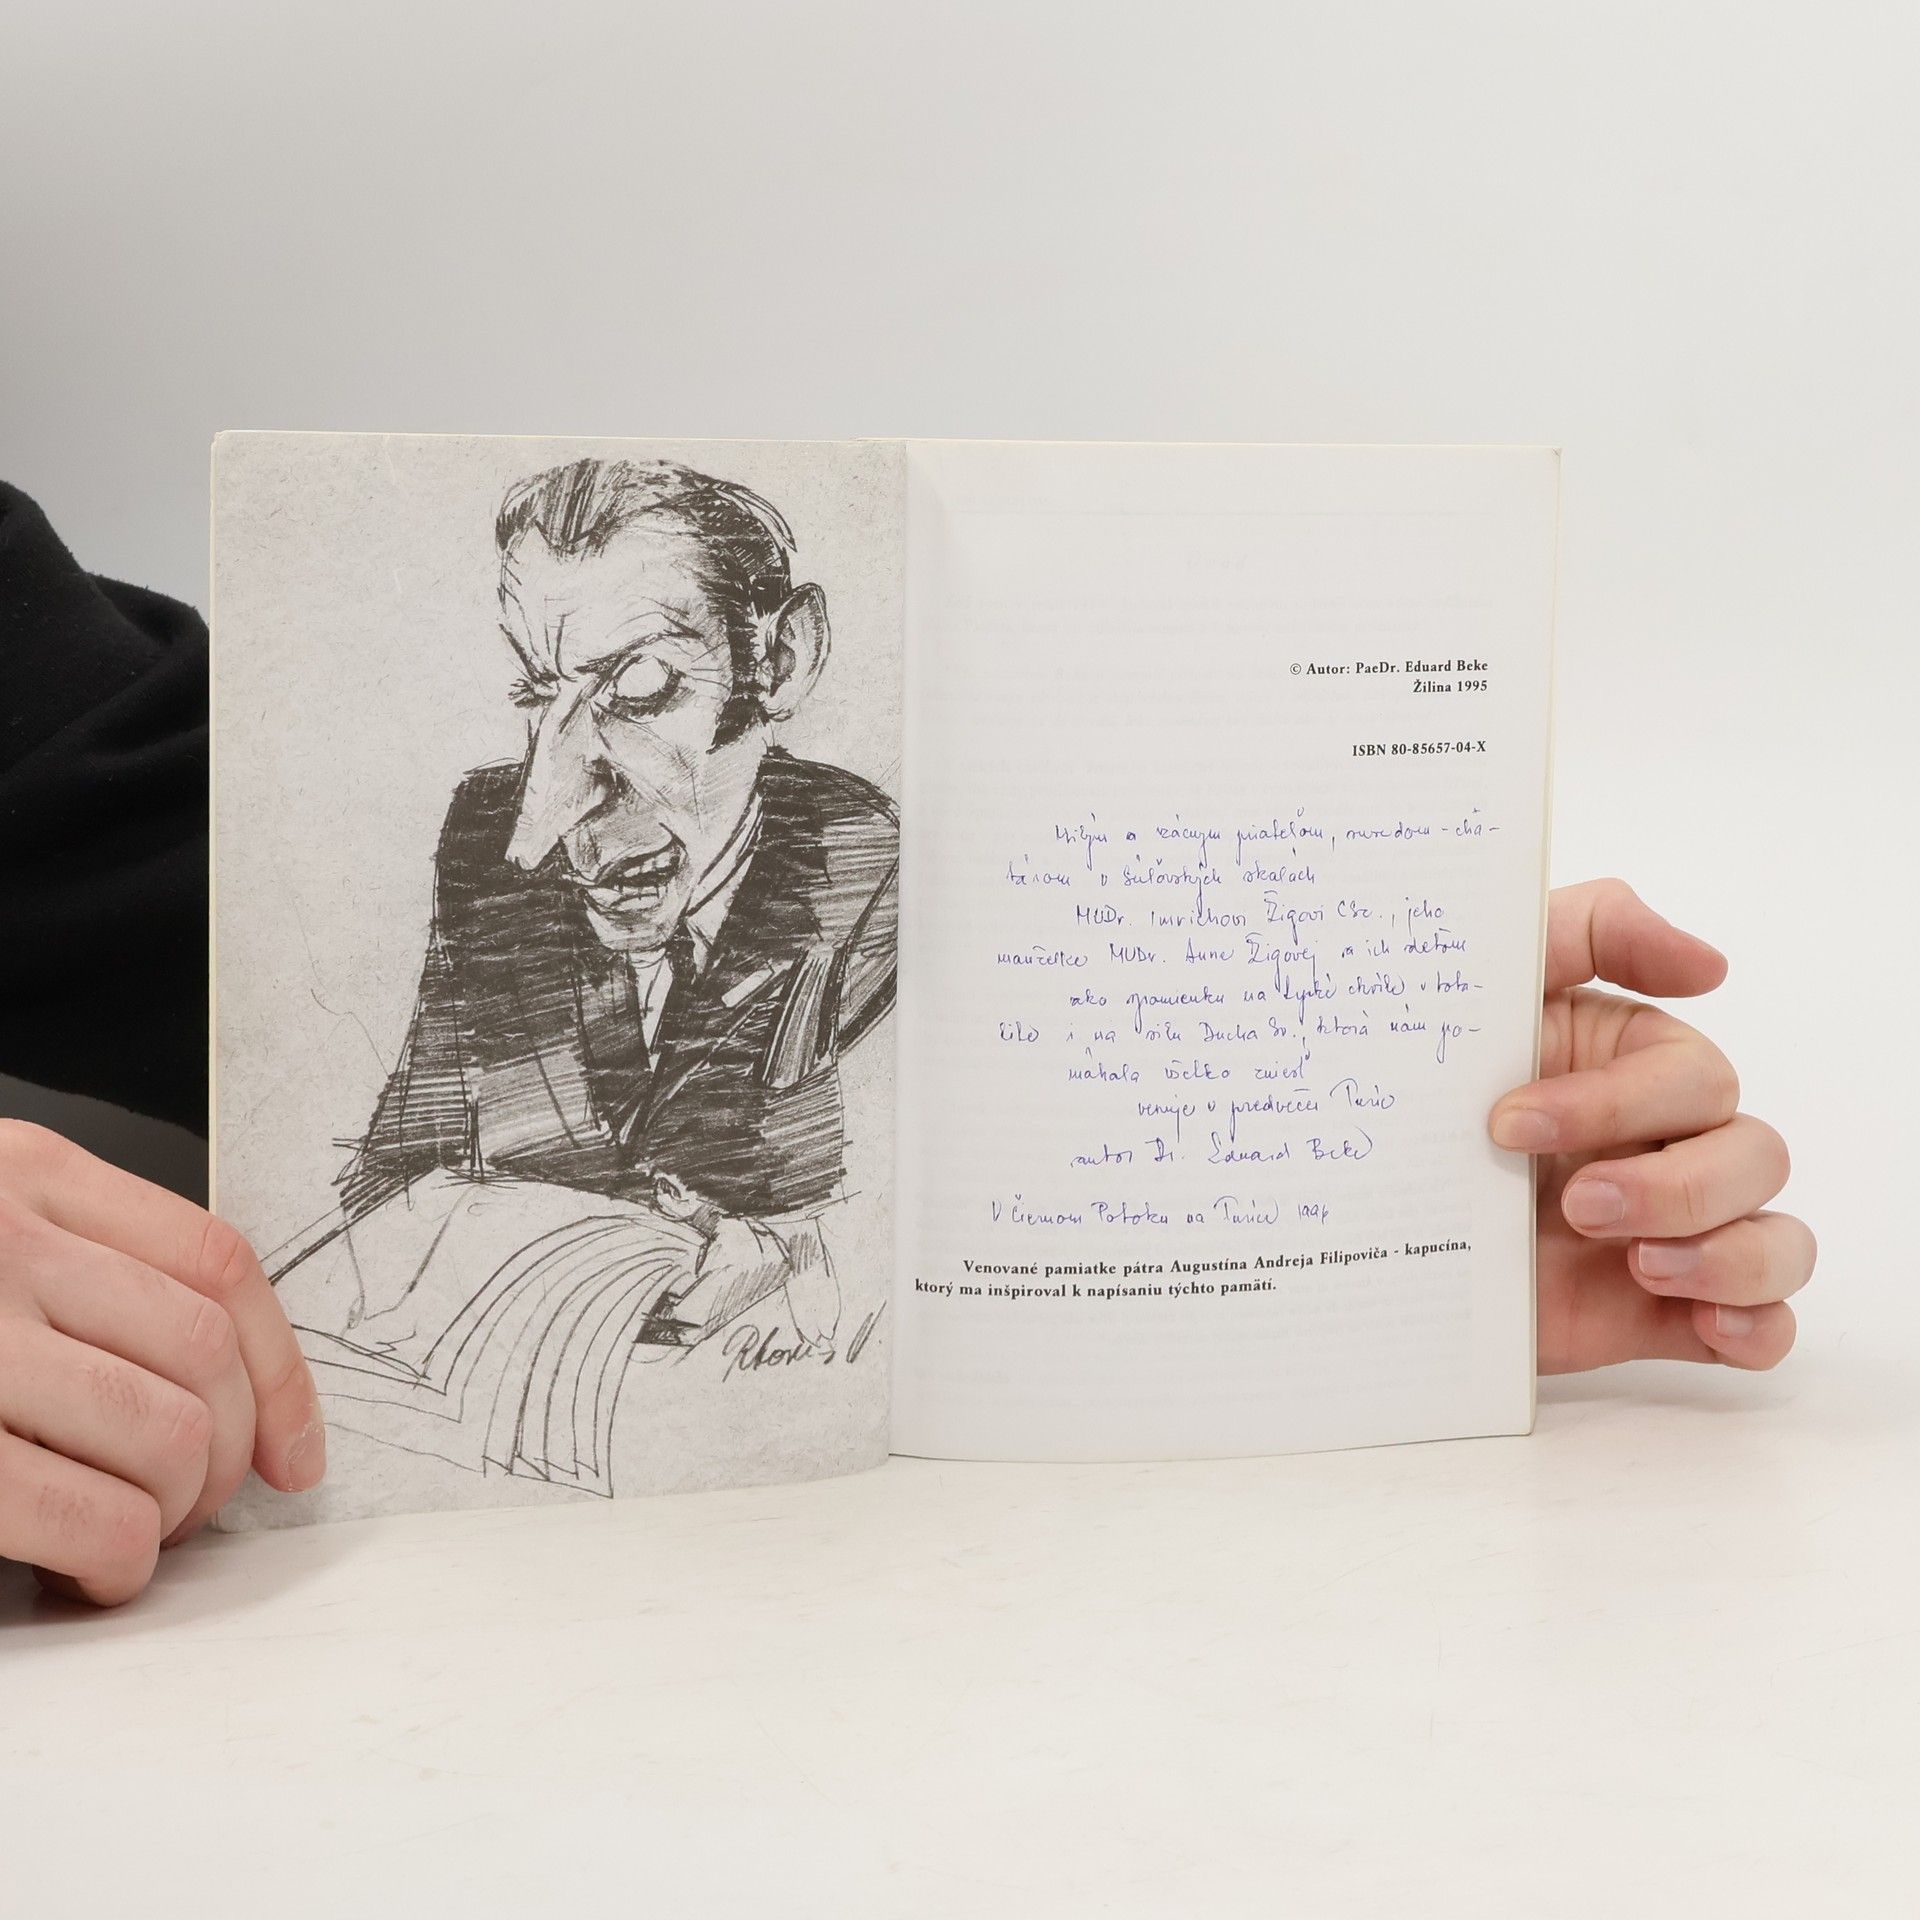 © Autor: PaeDr. Eduard Beke
Žilina 1995
ISBN 80-85657-04-X
Milým a vzácnym priateľom, susedom - cha-
tárom v Súľovských skalách
MUDr. Imrichovi Žigovi CSc., jeho
manželke MUDr. Anne Žigovej a ich deťom
ako spomienku na ťažké chvíle v tota-
lite i na silu Ducha Sv., ktorá nám po-
máhala všetko zniesť
venuje v predvečer Turíc
autor Dr. Eduard Beke
V Čiernom Potoku na Turíce 1996
Venované pamiatke pátra Augustína Andreja Filipoviča - kapucína,
ktorý ma inšpiroval k napísaniu týchto pamätí.